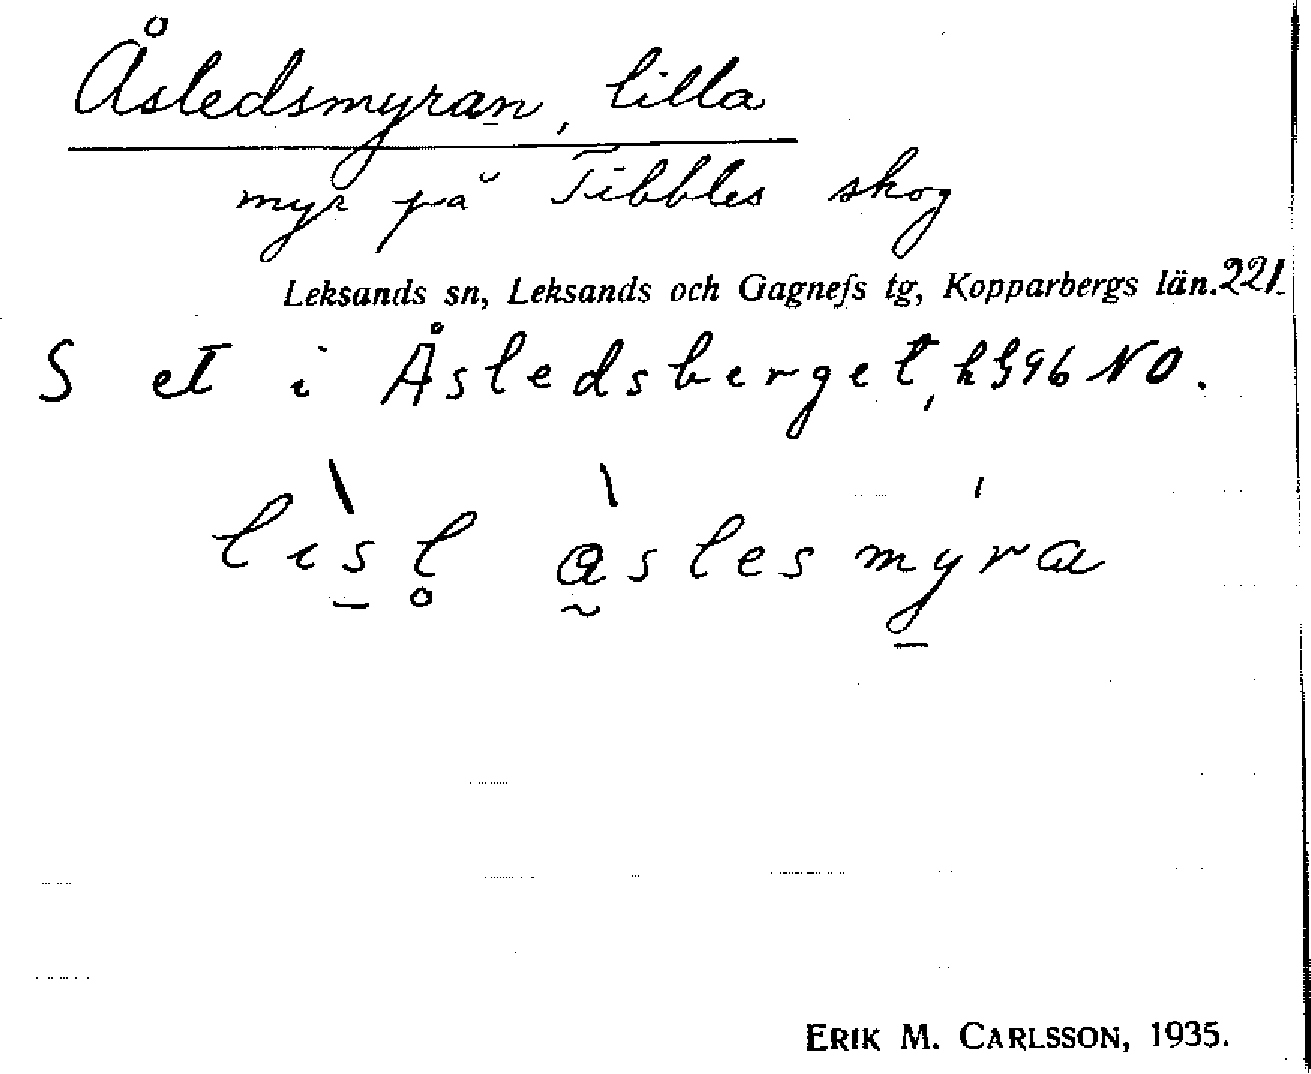 Åsledsmyran, lilla
myr på Tibbles skog
Leksands sn, Leksands och Gagnefs tg, Kopparbergs län. 221.
S et i Åsledsberget, h 96 NO.
lisl̥ asles myra
ERIK M. CARLSSON, 1935.